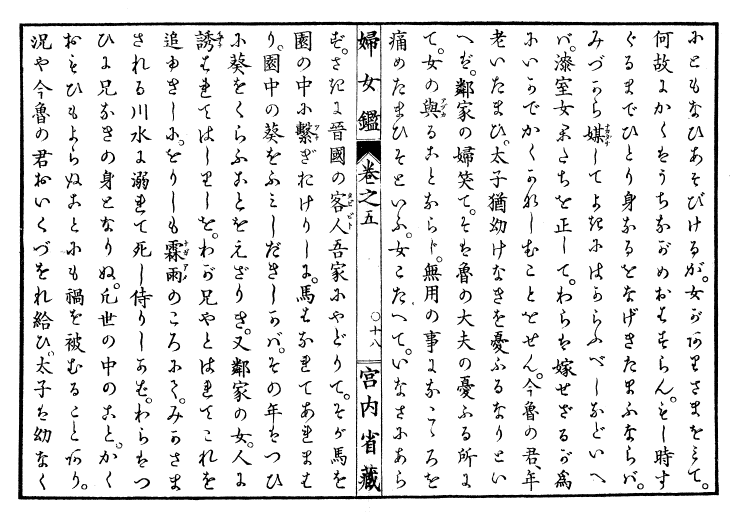 にともなひあそびけるが。女がありさまをみて。
何故にかくはうちながめおはすらん。もし時す
ぐるまでひとり身なるをなげきたまふならバ。
みづから媒してよきにはからふべしなどいへ
バ。漆室女かたちを正して。わらは嫁せざるが為
にいかでかくかなしむことをせん。今魯の君年
老いたまひ。太子猶幼けなきを憂ふるなりとい
へば。鄰家の婦笑て。そは魯の大夫の憂ふる所に
て。女の與ることならじ。無用の事になこゝろを
痛めたまひそといふ。女こたへて。いなさにあら
婦女鑑 卷之五 〇十八 宮内省藏
ず。さきに晉國の客人吾家にやどりて。そが馬を
園の中に繋ぎおけりしに。馬はなれてあれまは
り。園中の葵をふミしだきしかバ。その年はつひ
に葵をくらふことをえざりき。又鄰家の女。人に
誘はれてはしりしを。わが兄やとはれてこれを
追ゆきしに。をりしも霖雨のころにて。みかさま
される川水に溺れて死し侍りしかば。わらはつ
ひに兄なきの身となりぬ。凡世の中のこと。かく
おもひもよらぬことにも禍を被むることあり。
況や今魯の君おいくづをれ給ひ。太子は幼なく